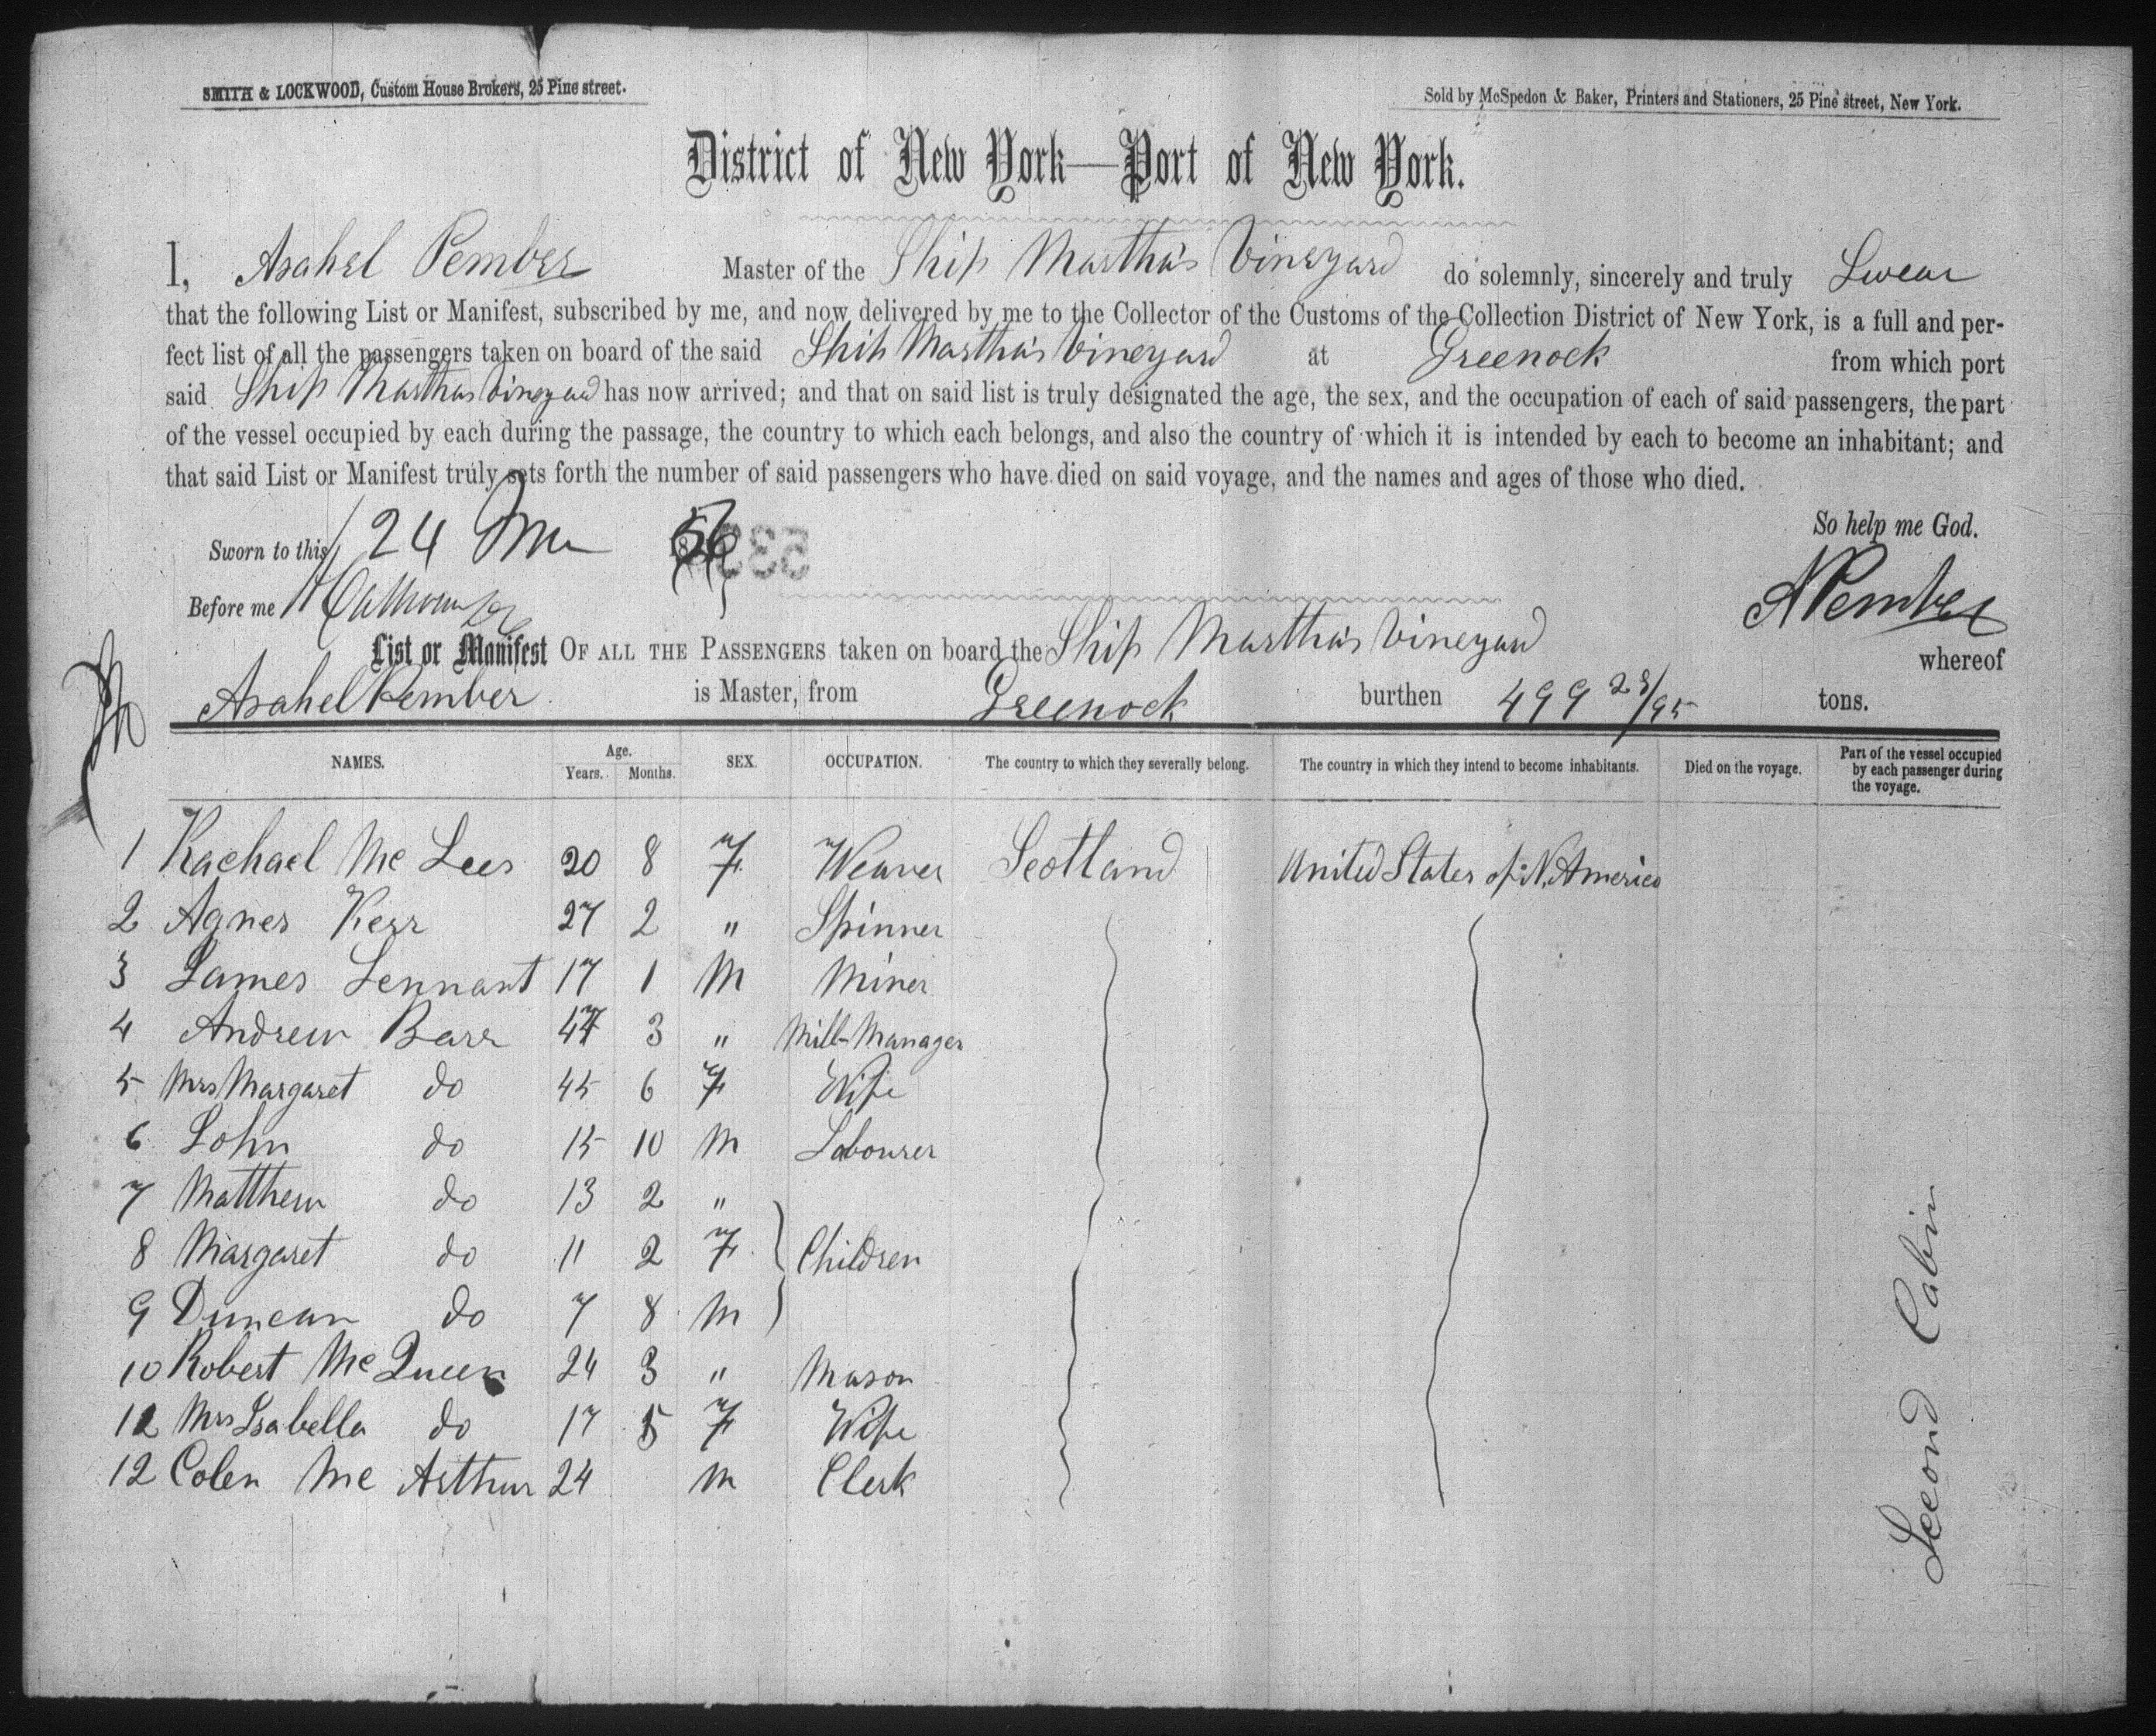 SMITH & LOCKWOOD, Custom House Brokers, 25 Pine street.
Sold by McSpedon & Baker, Printers and Stationers, 25 Pine street, New York.
District of New York—Port of New York.
I, Asahel Pember Master of the Ship Martha's Vineyard do solemnly, sincerely and truly Swear
that the following List or Manifest, subscribed by me, and now delivered by me to the Collector of the Customs of the Collection District of New York, is a full and per-
fect list of all the passengers taken on board of the said Ship Martha's Vineyard at Greenock from which port
said Ship Marthas Vineyard has now arrived; and that on said list is truly designated the age, the sex, and the occupation of each of said passengers, the part
of the vessel occupied by each during the passage, the country to which each belongs, and also the country of which it is intended by each to become an inhabitant; and
that said List or Manifest truly sets forth the number of said passengers who have died on said voyage, and the names and ages of those who died.
So help me God.
Sworn to this 24 56
Before me
A Pember
List or Manifest OF ALL THE PASSENGERS taken on board the Ship Martha's Vineyard whereof
Asahel Pember is Master, from Greenock burthen 499 23/95 tons.
NAMES. Age. Years. Months. SEX. OCCUPATION. The country to which they severally belong. The country in which they intend to become inhabitants. Died on the voyage. Part of the vessel occupied by each passenger during the voyage.
1 Rachael Mc Lees 20 8 F Weaver Scotland United States of N. America
2 Agnes Kerr 27 2 " Spinner
3 James Lennant 17 1 M Miner
4 Andrew Barr 47 3 " Mill-Manager
5 Mrs Margaret do 45 6 F Wife
6 John do 15 10 M Labourer
7 Matthew do 13 2 "
8 Margaret do 11 2 F Children
9 Duncan do 7 8 M
10 Robert Mc Queen 24 3 " Mason
12 Mrs Isabella do 17 5 F Wife
12 Colen Mc Arthur 24 M Clerk
Second Cabin